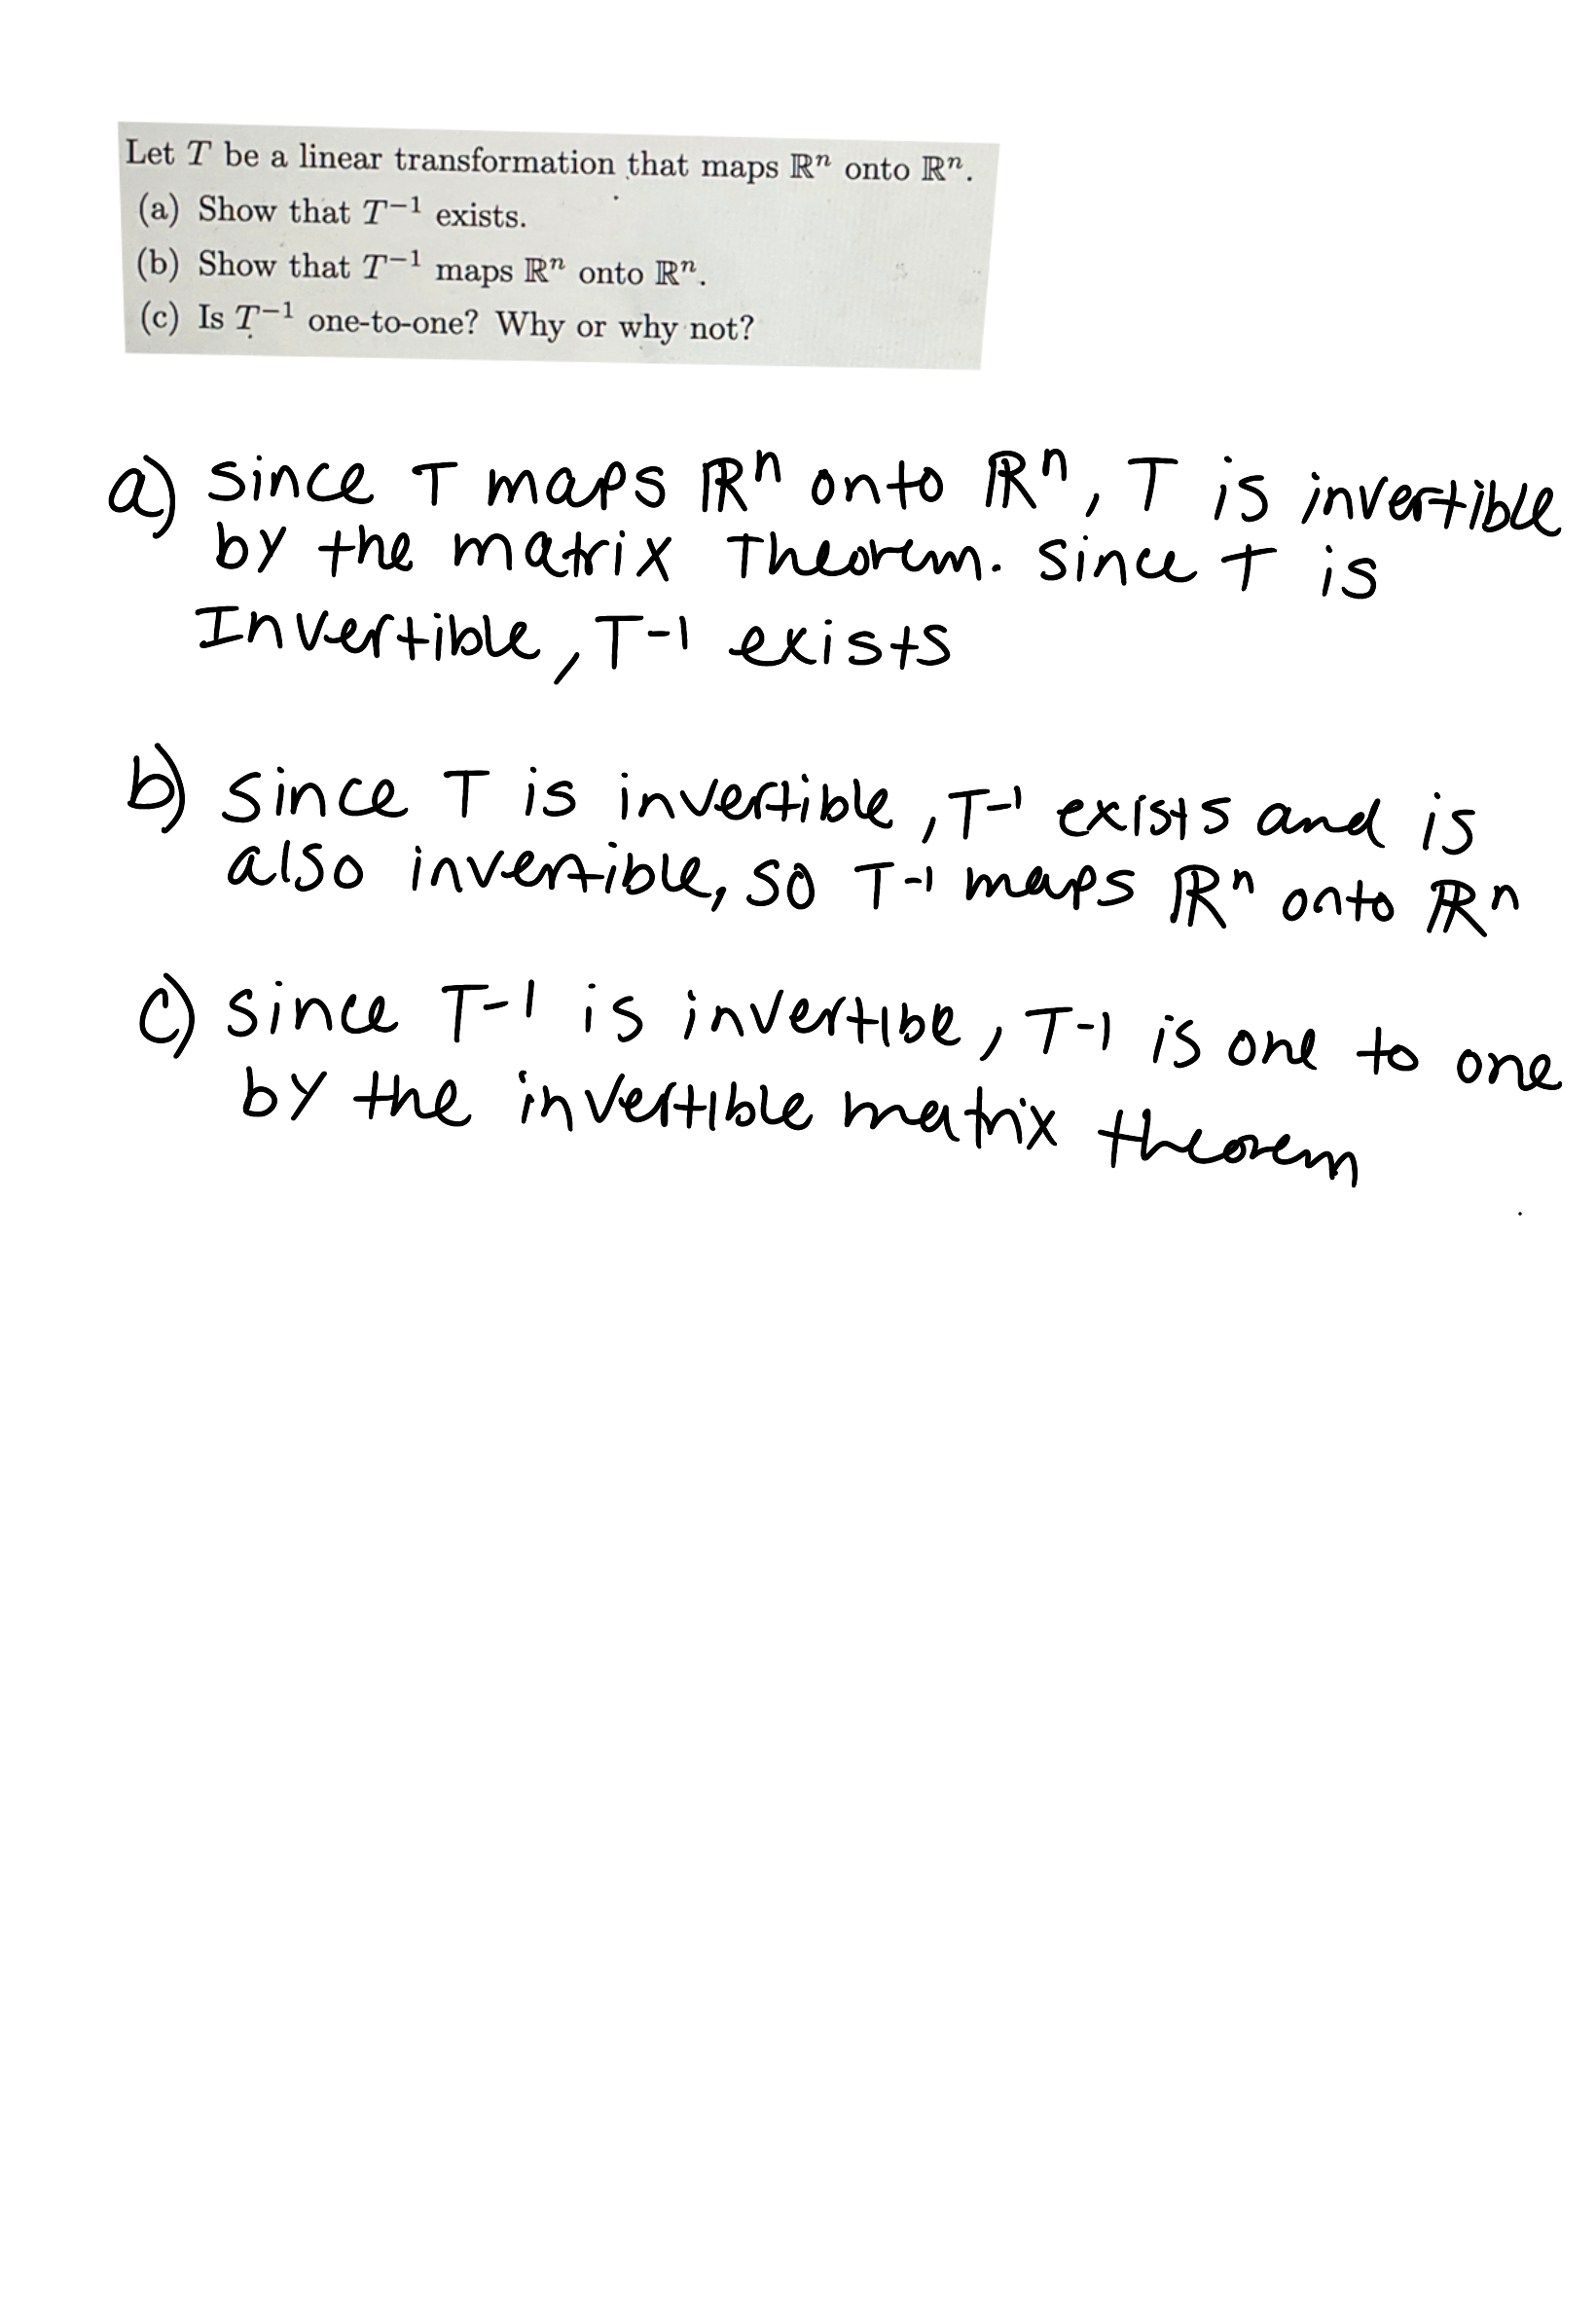 Let T be a linear transformation that maps ℝⁿ onto ℝⁿ.
(a) Show that T⁻¹ exists.
(b) Show that T⁻¹ maps ℝⁿ onto ℝⁿ.
(c) Is T⁻¹ one-to-one? Why or why not?
a) since T maps ℝⁿ onto ℝⁿ, T is invertible
by the matrix Theorem. since T is
Invertible, T-1 exists
b) since T is invertible, T-1 exists and is
also invertible, so T-1 maps ℝⁿ onto ℝⁿ
c) since T-1 is invertible, T-1 is one to one
by the invertible matrix theorem